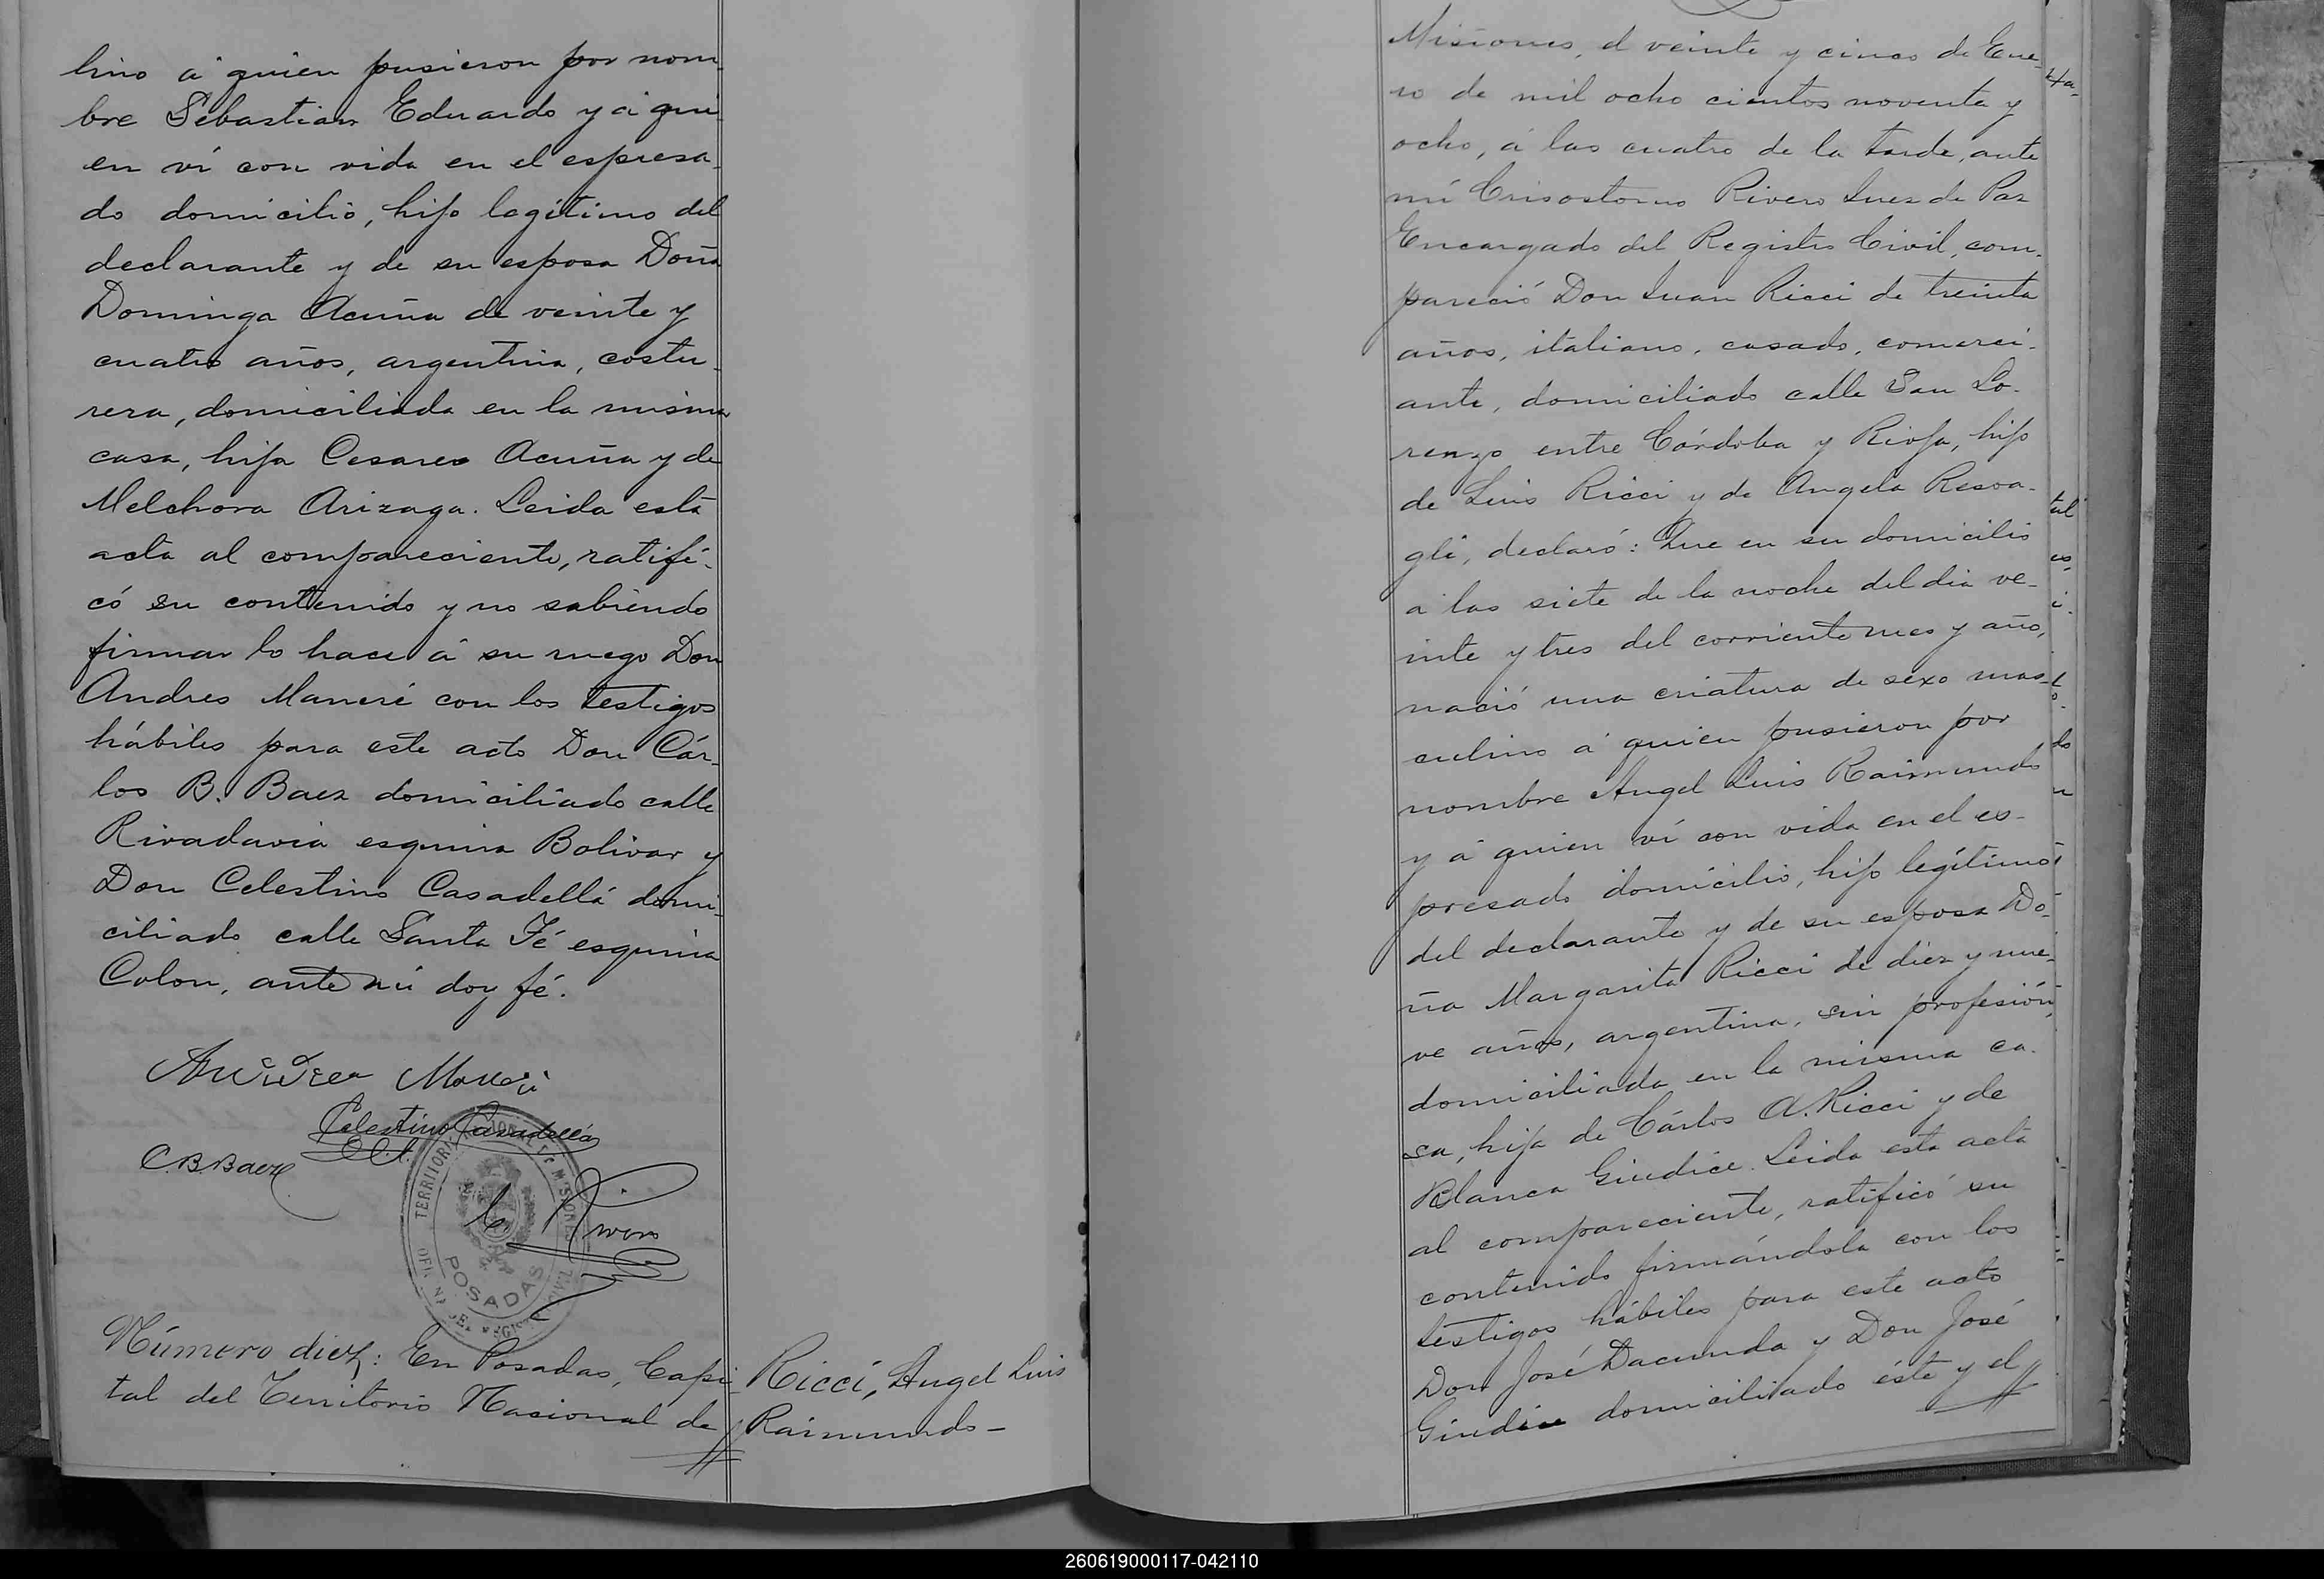 lino á quien pusieron por nom-
bre Sebastian Eduardo y á qui-
en ví con vida en el espresa-
do domicilio, hijo legítimo del
declarante y de su esposa Doña
Dominga Acuña de veinte y
cuatro años, argentina, costu-
rera, domiciliada en la misma
casa, hija Cesareo Acuña y de
Melchora Arizaga. Leida esta
acta al compareciente, ratifi-
có su contenido y no sabiendo
firmar lo hace á su ruego Don
Andres Maneré con los testigos
hábiles para este acto Don Cár-
los B. Baez domiciliado calle
Rivadavia esquina Bolivar y
Don Celestino Casadellá domi-
ciliado calle Santa Fé esquina
Colon, ante mí doy fé.
Celestino Casadellá
C.B.Baez
C. Rivero
TERRITORIO NACIONAL DE MISIONES
POSADAS
OFICINA DEL REGISTRO CIVIL
Número diez: En Posadas, Capi-
tal del Territorio Nacional de
Ricci, Angel Luis
Raimundo-
Misiones, el veinte y cinco de Ene-
ro de mil ocho cientos noventa y
ocho, á las cuatro de la tarde, ante
mí Crisostomo Rivero Juez de Paz
Encargado del Registro Civil, com-
pareció Don Juan Ricci de treinta
años, italiano, casado, comerci-
ante, domiciliado calle San Lo-
renzo entre Córdoba y Rioja, hijo
de Luis Ricci y de Angela Resva-
gli, declaró: Que en su domicilio
á las siete de la noche del dia ve-
inte y tres del corriente mes y año,
nació una criatura de sexo mas-
culino á quien pusieron por
nombre Angel Luis Raimundo
y á quien ví con vida en el es-
presado domicilio, hijo legítimo
del declarante y de su esposa Do-
ña Margarita Ricci de diez y nue-
ve años, argentina, sin profesión,
domiciliada en la misma ca-
sa, hija de Cárlos A. Ricci y de
Blanca Giudice. Leida esta acta
al compareciente, ratificó su
contenido firmándola con los
testigos hábiles para este acto
Don José Dacunda y Don José
Giudice domiciliado éste y el
260619000117-042110